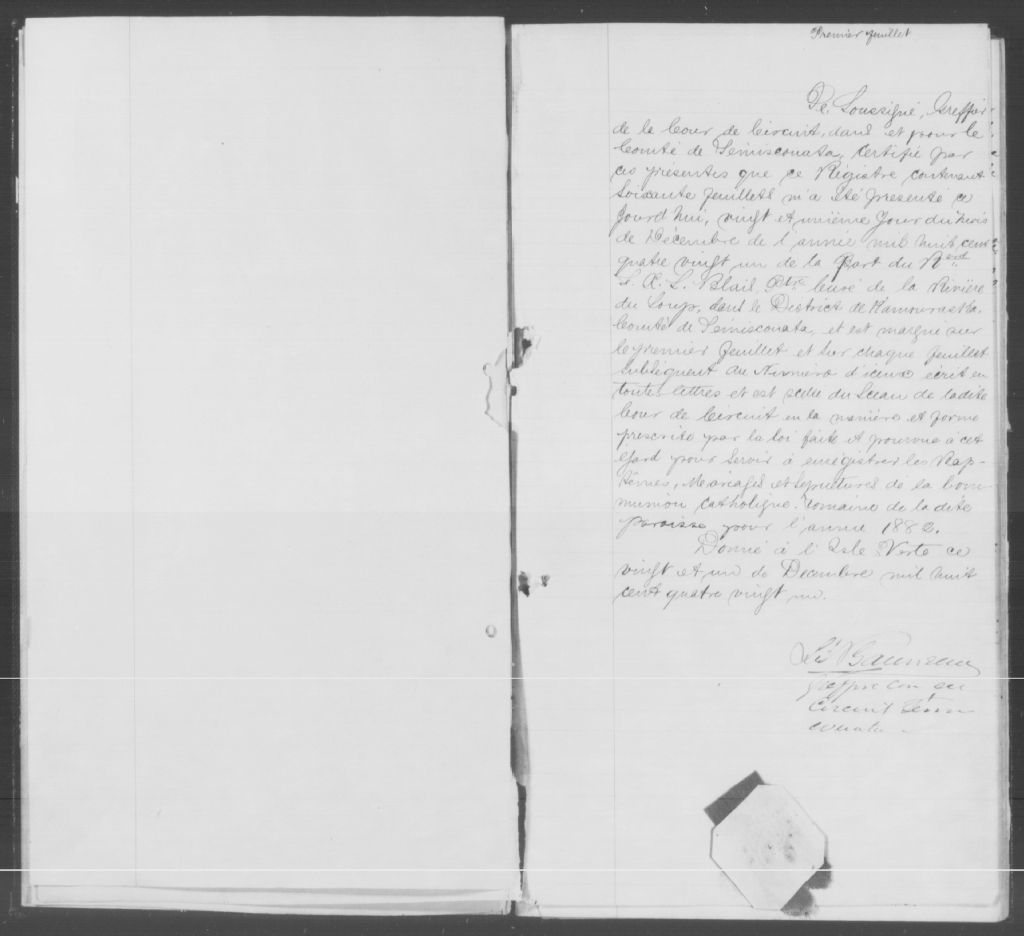 Premier feuillet
Le Soussigné, Greffier
de la Cour de Circuit, dans et pour le
Comté de Témiscouata, Certifie par
ces presentes que ce Régistre contenant
Soixante feuillets m'a été presenté ce
Jourd'hui, vingt et unième Jour du Mois
de Décembre de l'année mil huit cent
quatre vingt un de la part du Rérd
Blais, Ptre Curé de la Rivière
du Loup, dans le District de Kamouraska,
Comté de Témiscouata, et est marqué sur
le premier feuillet et sur chaque feuillet
Subséquent du Numéro d'iceux écrit en
toutes lettres et est scellé du Sceau de ladite
Cour de Circuit en la manière et forme
prescrite par la loi faite et pourvue à cet
égard pour Servir à enrégistrer les Bap-
têmes, Mariages et Sépultures de la Com-
munion Catholique Romaine de la dite
paroisse pour l'année 1882.
Donné à l'Isle Verte ce
vingt et un de Décembre mil huit
cent quatre vingt un.
Greffier
Circuit Témis
couata